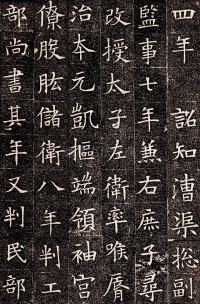 四年 詔知漕渠揔副
監事七年兼右庶子尋
改授太子左衛率喉脣
治本元凱樞端領袖宮
僚股肱儲衛八年判工
部尚書其年又判民部